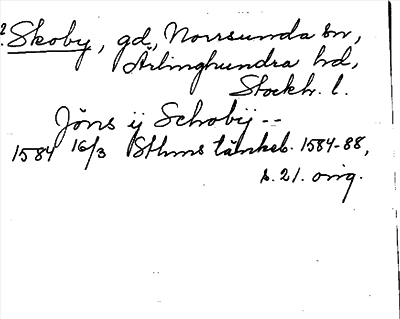 2. Skoby, gd, Norrsunda sn,
Ärlinghundra hd,
Stockh. l.
Jöns ij Schobij --
1584 16/3 Sthms tänkeb. 1584-88,
s. 21. orig.